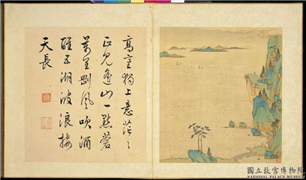 高臺獨上意茫々
正見遙山一點蒼
萬里剛風吹酒
醒五湖波浪接
天長
國立故宮博物院
NATIONAL PALACE MUSEUM